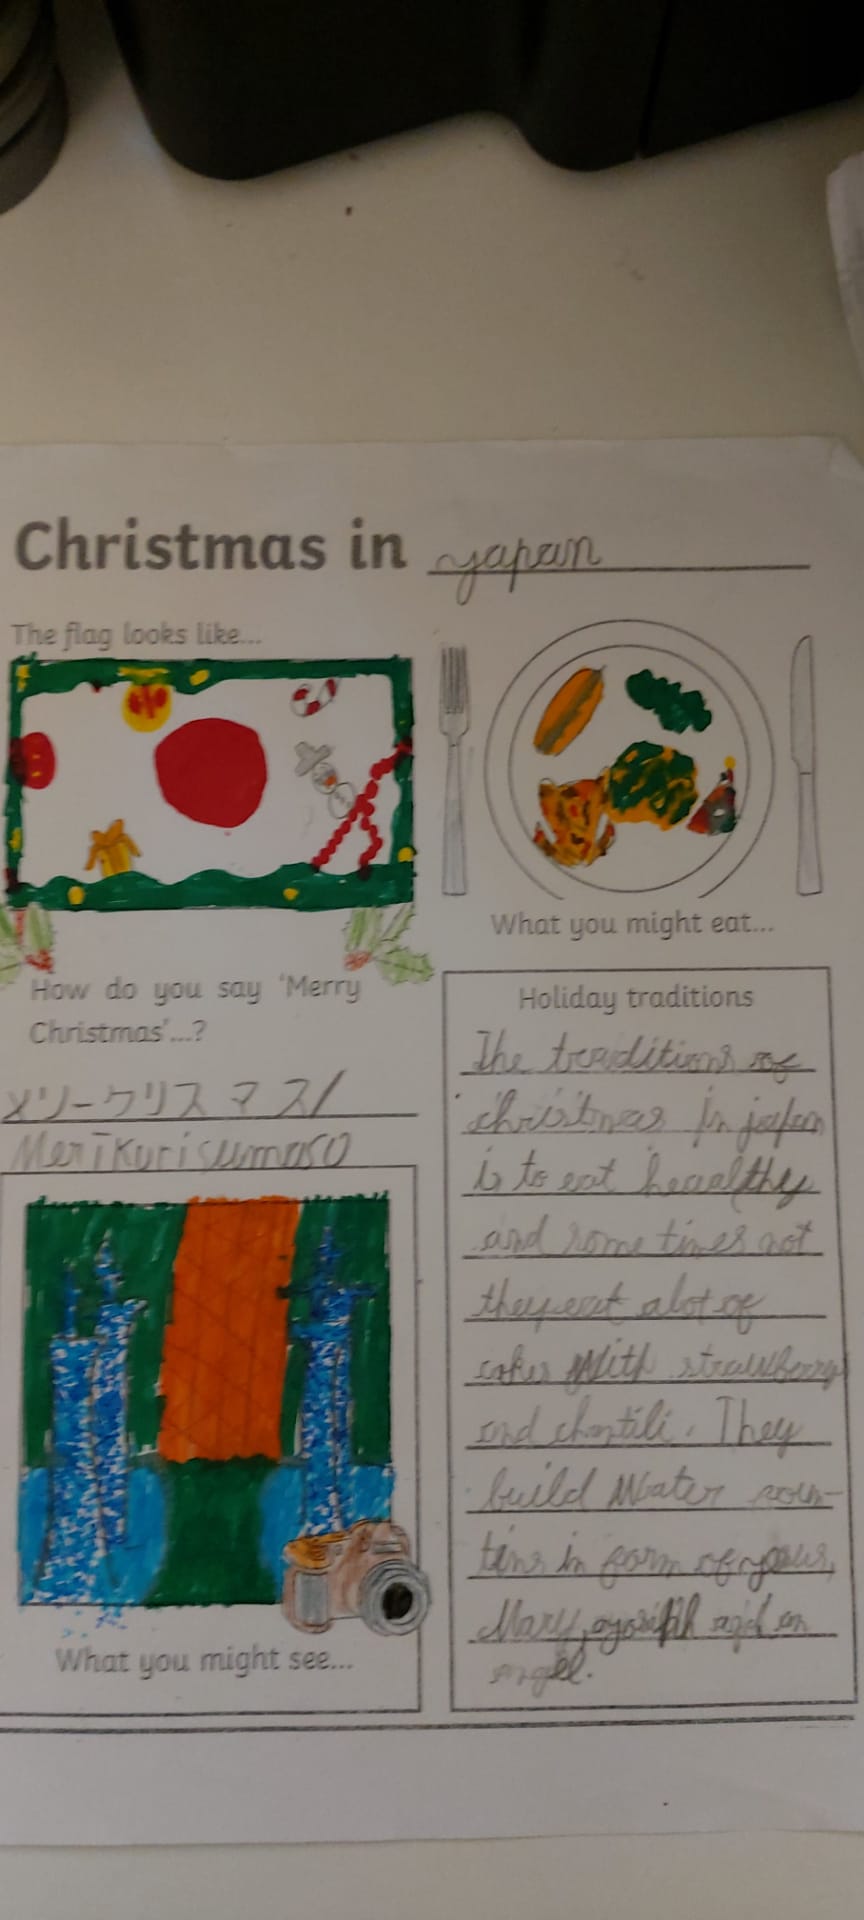 Christmas in yapan
The flag looks like...
What you might eat...
How do you say 'Merry
Christmas'...?
メリークリスマス/
Merīkurisumasu
What you might see...
Holiday traditions
The traditions of
christmas in japan
is to eat healthy
and some times not
they eat alot of
cakes with strawberry
and chantili. They
build Water foun-
tins in form of
Mary, and an
angel.